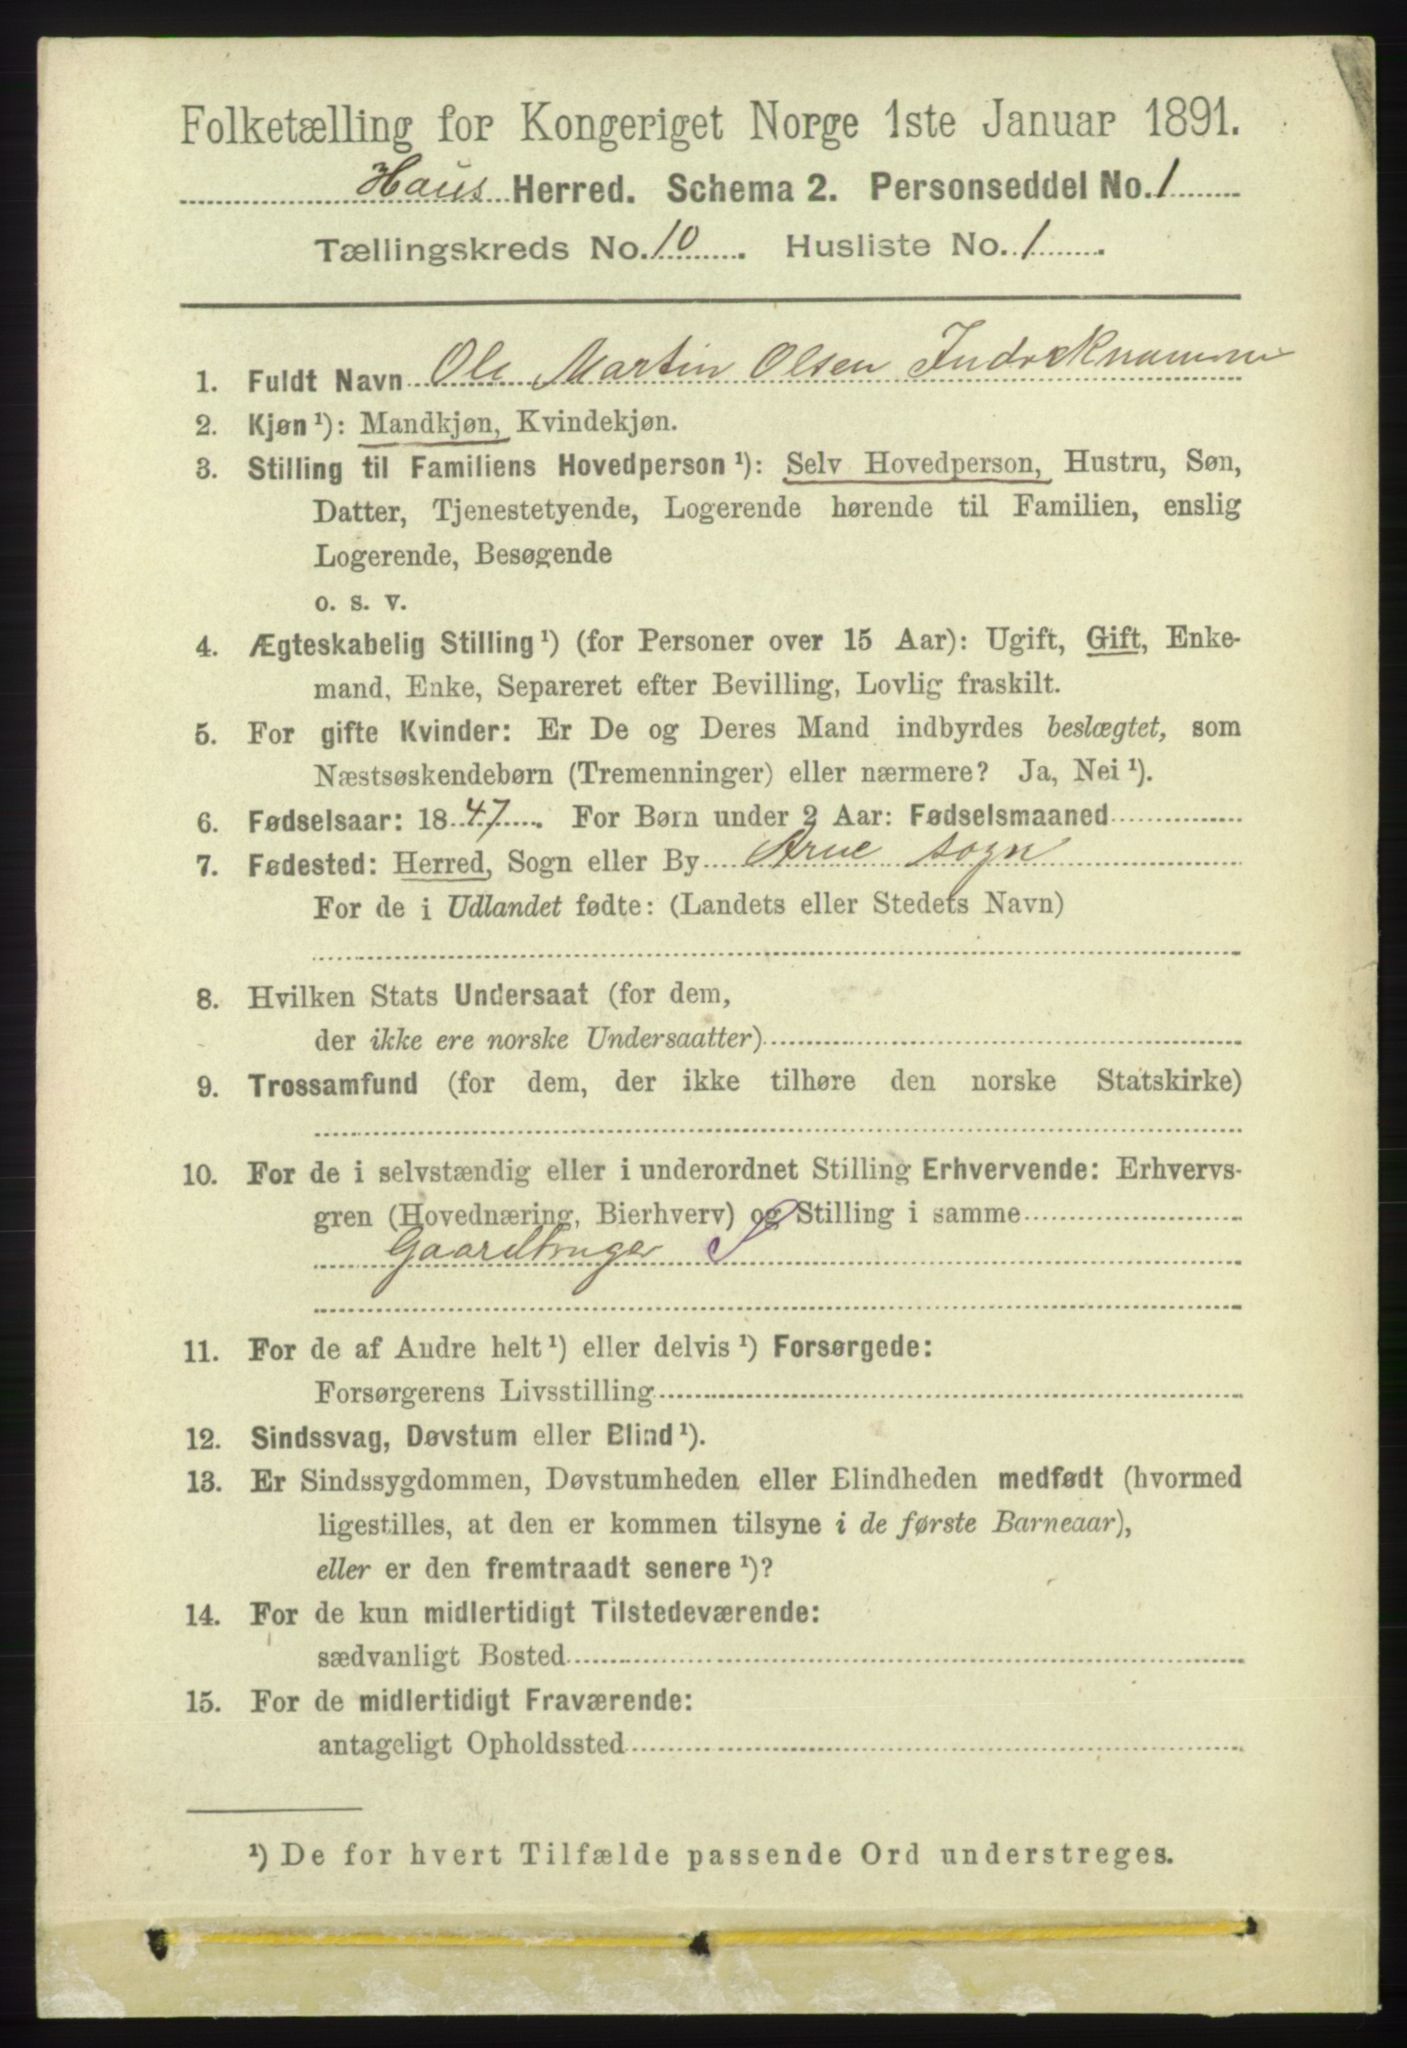 Folketælling for Kongeriget Norge 1ste Januar 1891.
Haus Herred. Schema 2. Personseddel No. 1
Tællingskreds No. 10. Husliste No. 1.
1. Fuldt Navn Ole Martin Olsen Indre Knamme
2. Kjøn ¹): Mandkjøn, Kvindekjøn.
3. Stilling til Familiens Hovedperson ¹): Selv Hovedperson, Hustru, Søn,
Datter, Tjenestetyende, Logerende hørende til Familien, enslig
Logerende, Besøgende
o. s. v.
4. Ægteskabelig Stilling ¹) (for Personer over 15 Aar): Ugift, Gift, Enke-
mand, Enke, Separeret efter Bevilling, Lovlig fraskilt.
5. For gifte Kvinder: Er De og Deres Mand indbyrdes beslægtet, som
Næstsøskendebørn (Tremenninger) eller nærmere? Ja, Nei ¹).
6. Fødselsaar: 1847. For Børn under 2 Aar: Fødselsmaaned
7. Fødested: Herred, Sogn eller By Arne sogn
For de i Udlandet fødte: (Landets eller Stedets Navn)
8. Hvilken Stats Undersaat (for dem,
der ikke ere norske Undersaatter)
9. Trossamfund (for dem, der ikke tilhøre den norske Statskirke)
10. For de i selvstændig eller i underordnet Stilling Erhvervende: Erhvervs-
gren (Hovednæring, Bierhverv) og Stilling i samme
Gaardbruger S
11. For de af Andre helt ¹) eller delvis ¹) Forsørgede:
Forsørgerens Livsstilling
12. Sindssvag, Døvstum eller Blind ¹).
13. Er Sindssygdommen, Døvstumheden eller Blindheden medfødt (hvormed
ligestilles, at den er kommen tilsyne i de første Barneaar),
eller er den fremtraadt senere ¹)?
14. For de kun midlertidigt Tilstedeværende:
sædvanligt Bosted
15. For de midlertidigt Fraværende:
antageligt Opholdssted
¹) De for hvert Tilfælde passende Ord understreges.